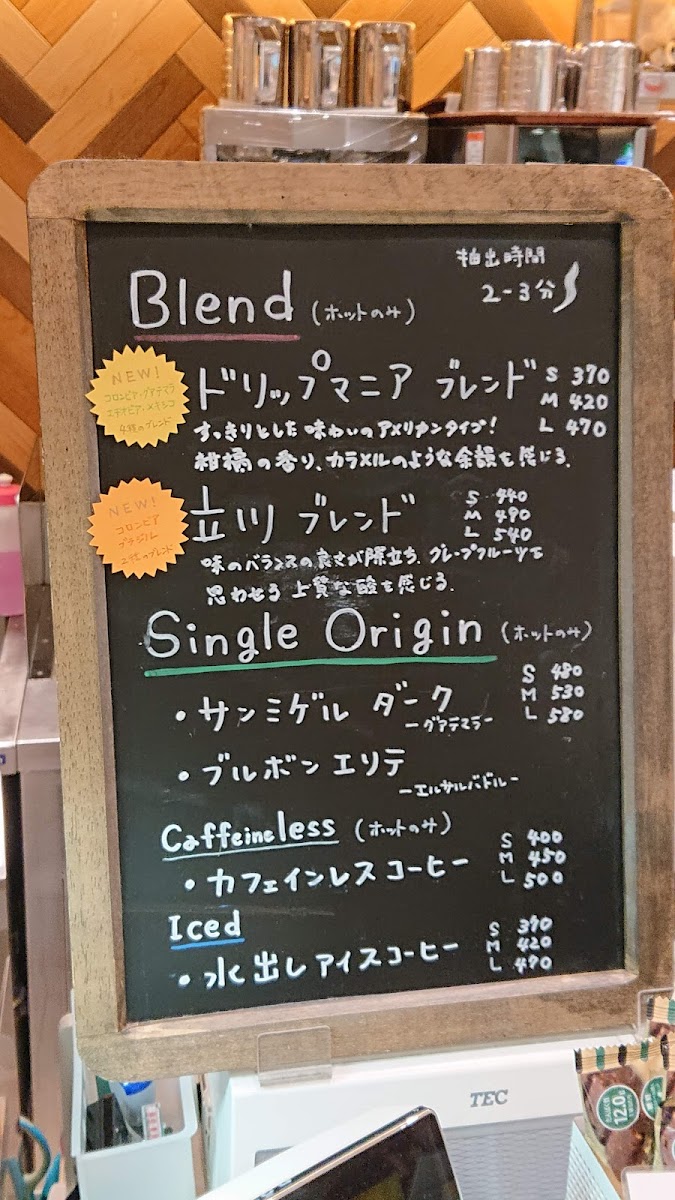 抽出時間
2-3分
Blend (ホットのみ)
NEW!
コロンビア・グアテマラ
エチオピア・メキシコ
4種のブレンド
ドリップマニア ブレンド S 370
M 420
L 470
すっきりとした味わいのアメリカンタイプ!
柑橘の香り、カラメルのような余韻を感じる。
NEW!
コロンビア
ブラジル
2種のブレンド
立川 ブレンド S 440
M 490
L 540
味のバランスの良さが際立ち、グレープフルーツを
思わせる 上質な酸を感じる。
Single Origin (ホットのみ)
・サンミゲル ダーク S 480
-グアテマラ- M 530
L 580
・ブルボン エリテ
-エルサルバドル-
Caffeineless (ホットのみ)
・カフェインレスコーヒー S 400
M 450
L 500
Iced
・水出しアイスコーヒー S 370
M 420
L 470
TEC
12.0g